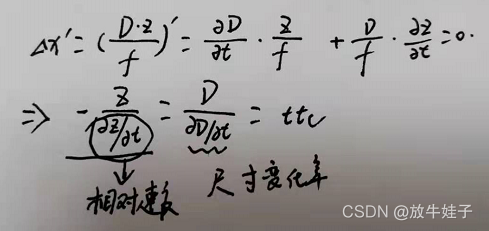 Δx' = (D·z/f)' = ∂D/∂t · z/f + D/f · ∂z/∂t = 0.
⇒ - z/(∂z/∂t) = D/(∂D/∂t) = ttc
相对速度 尺寸变化率
CSDN @放牛娃子